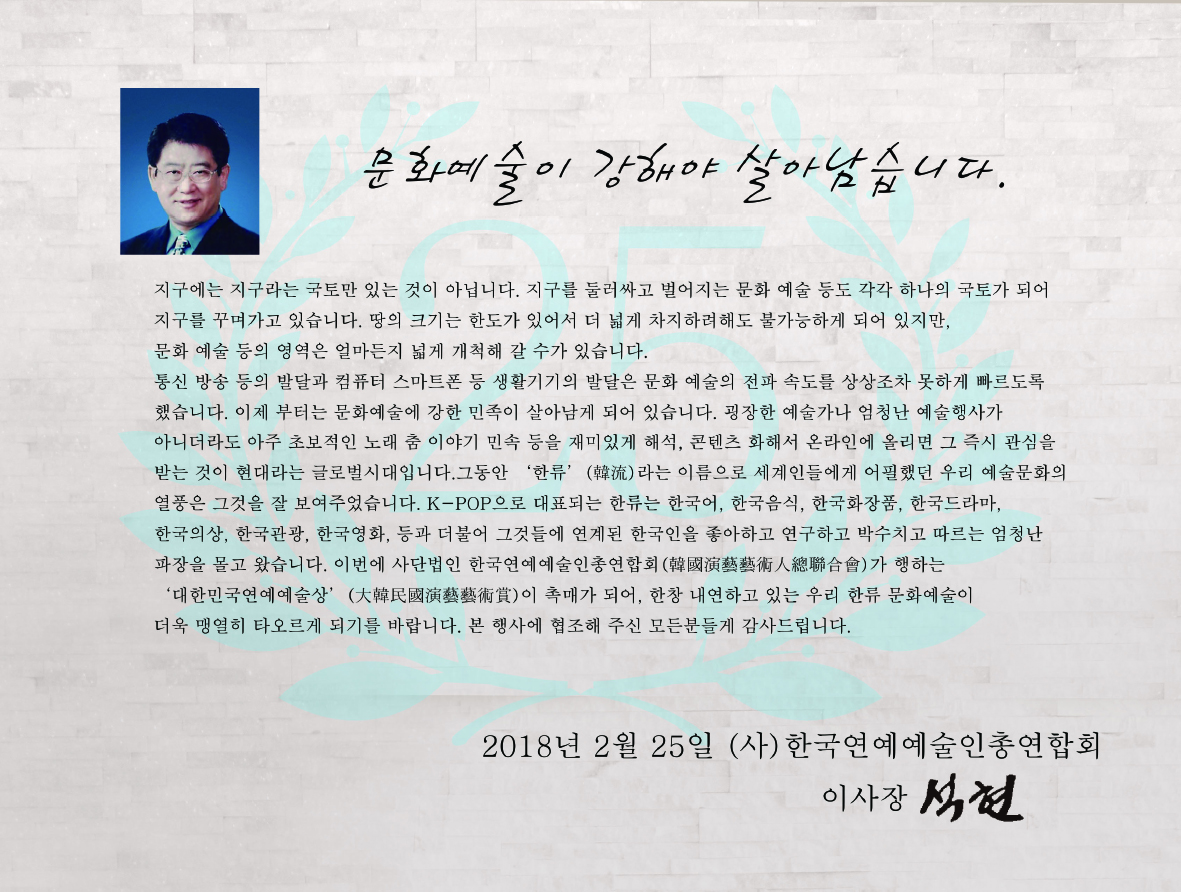 문화예술이 강해야 살아남습니다.
지구에는 지구라는 국토만 있는 것이 아닙니다. 지구를 둘러싸고 벌어지는 문화 예술 등도 각각 하나의 국토가 되어
지구를 꾸며가고 있습니다. 땅의 크기는 한도가 있어서 더 넓게 차지하려해도 불가능하게 되어 있지만,
문화 예술 등의 영역은 얼마든지 넓게 개척해 갈 수가 있습니다.
통신 방송 등의 발달과 컴퓨터 스마트폰 등 생활기기의 발달은 문화 예술의 전파 속도를 상상조차 못하게 빠르도록
했습니다. 이제 부터는 문화예술에 강한 민족이 살아남게 되어 있습니다. 굉장한 예술가나 엄청난 예술행사가
아니더라도 아주 초보적인 노래 춤 이야기 민속 등을 재미있게 해석, 콘텐츠 화해서 온라인에 올리면 그 즉시 관심을
받는 것이 현대라는 글로벌시대입니다.그동안 ‘한류’ (韓流)라는 이름으로 세계인들에게 어필했던 우리 예술문화의
열풍은 그것을 잘 보여주었습니다. K-POP으로 대표되는 한류는 한국어, 한국음식, 한국화장품, 한국드라마,
한국의상, 한국관광, 한국영화, 등과 더불어 그것들에 연계된 한국인을 좋아하고 연구하고 박수치고 따르는 엄청난
파장을 몰고 왔습니다. 이번에 사단법인 한국연예예술인총연합회(韓國演藝藝術人總聯合會)가 행하는
‘대한민국연예예술상’ (大韓民國演藝藝術賞)이 촉매가 되어, 한창 내연하고 있는 우리 한류 문화예술이
더욱 맹열히 타오르게 되기를 바랍니다. 본 행사에 협조해 주신 모든분들게 감사드립니다.
25
2018년 2월 25일 (사)한국연예예술인총연합회
이사장 석현